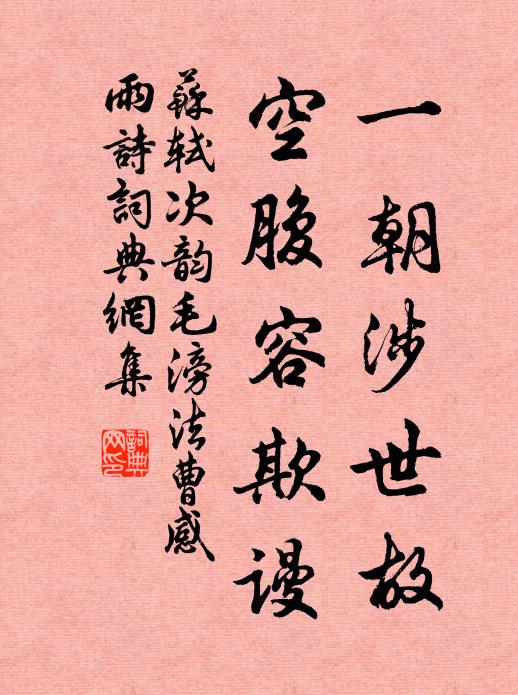 一朝涉世故
空腹容欺谩
蘇軾次韵毛滂法曹感
雨詩詞典網集
詞典網印